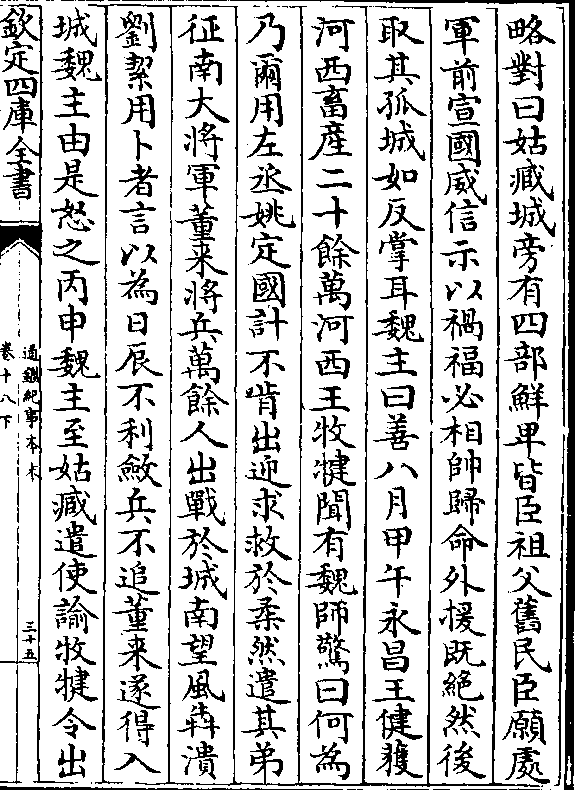 略對曰姑臧城旁有四部鮮卑皆臣祖父舊民臣願處
軍前宣國威信示以禍福必相帥歸命外援既絶然後
取其孤城如反掌耳魏主曰善八月甲午永昌王健獲
河西畜産二十餘萬河西王牧犍聞有魏師驚曰何為
乃爾用左丞姚定國計不啃出迎求救於柔然遣其弟
征南大將軍董来將兵萬餘人出戰於城南望風犇潰
劉絜用卜者言以為日辰不利斂兵不追董来遂得入
城魏主由是怒之丙申魏主至姑臧遣使諭牧犍令出
欽定四庫全書
通鑑紀事本末
卷十八下
三十五